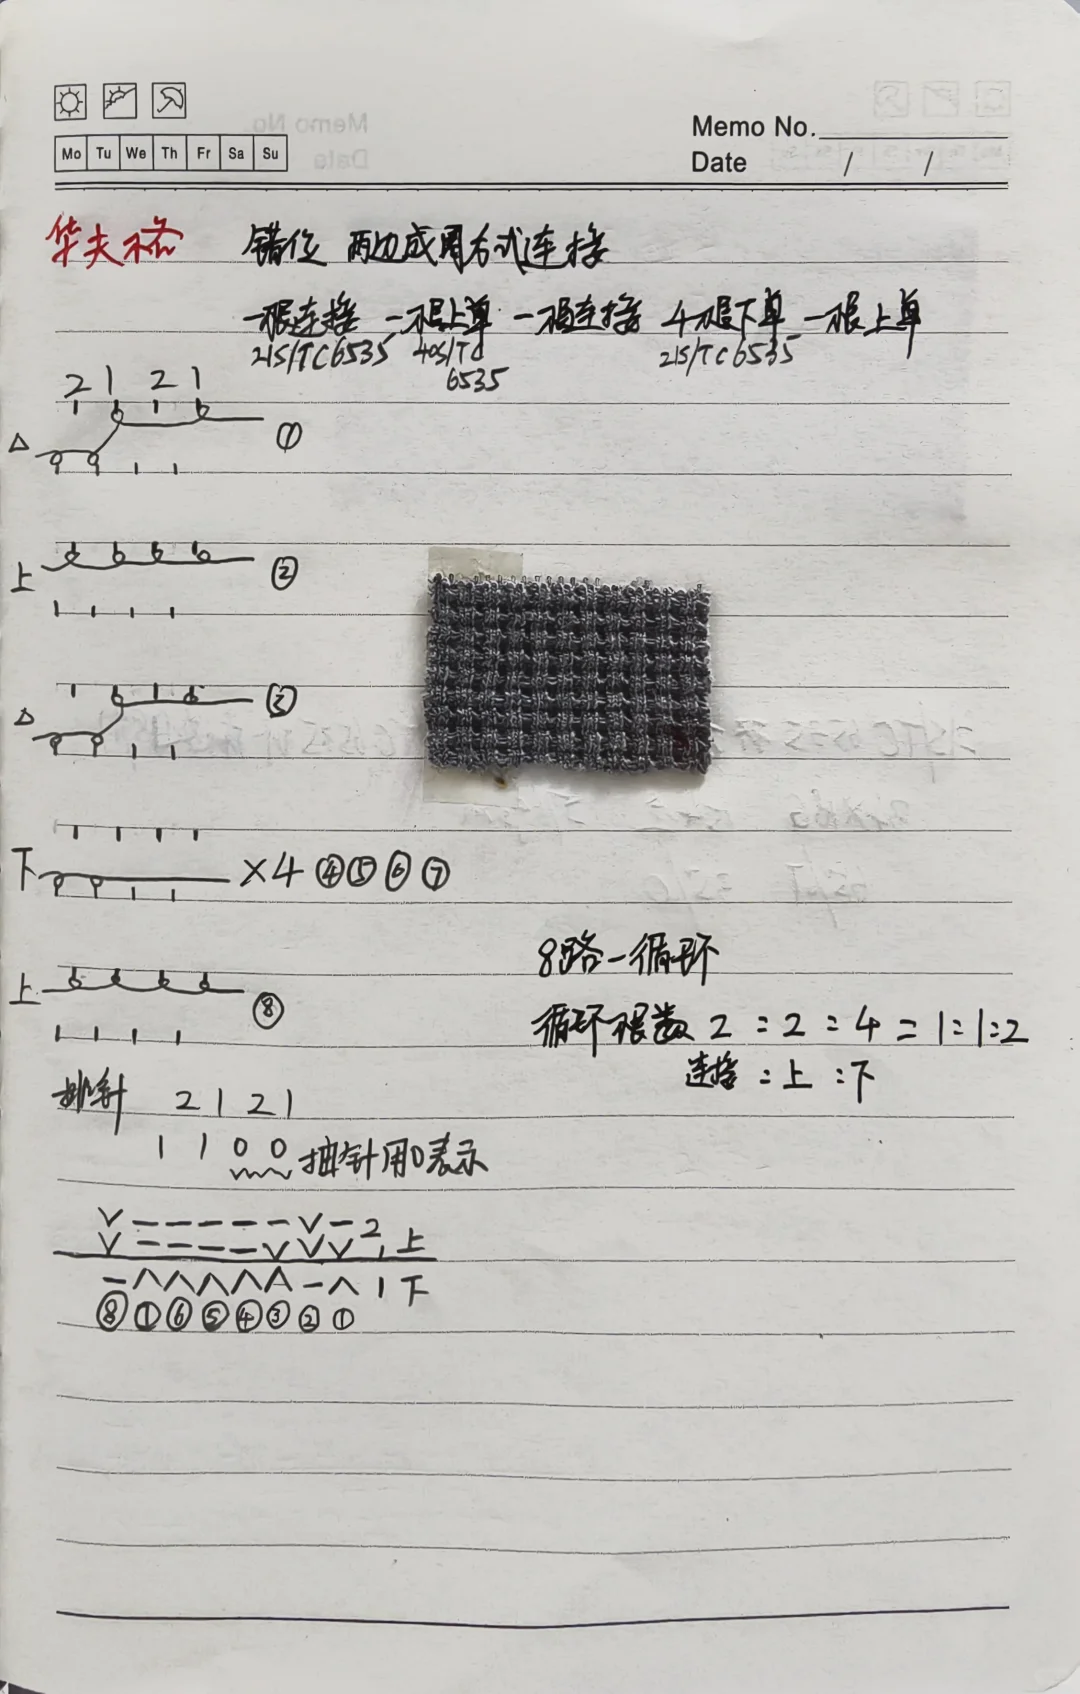 Memo No.
Mo Tu We Th Fr Sa Su
Date / /
华夫格 错位 两边成圈方式连接
一根连接 一根上单 一根连接 4根下单 一根上单
21S/TC6535 40S/TC 21S/TC6535
6535
2 1 2 1
△ ①
上 ②
△ ③
下 ×4 ④⑤⑥⑦
上 ⑧
8路一循环
循环根数 2:2:4=1:1:2
连接:上:下
排针 2 1 2 1
1 1 0 0 抽针用0表示
V – – – – – V – 2
V – – – – V V V 1 上
– ∧ ∧ ∧ ∧ ∧ – ∧ 1 下
⑧ ① ⑥ ⑤ ④ ③ ② ①